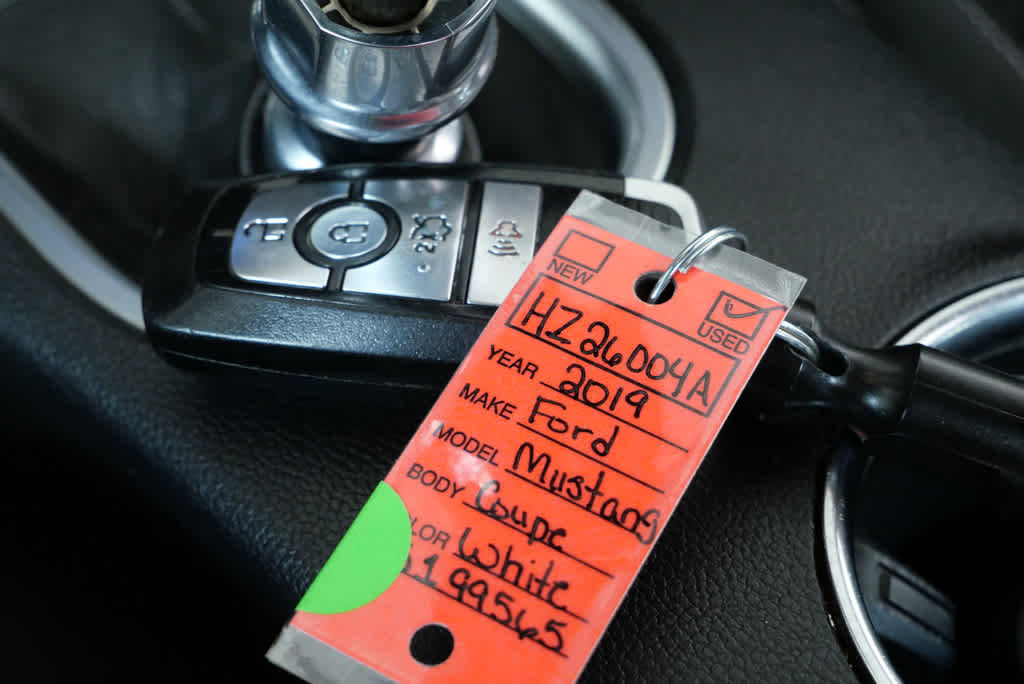 x2
NEW
USED
HZ26004A
YEAR 2019
MAKE Ford
MODEL Mustang
BODY Coupe
LOR White
199565